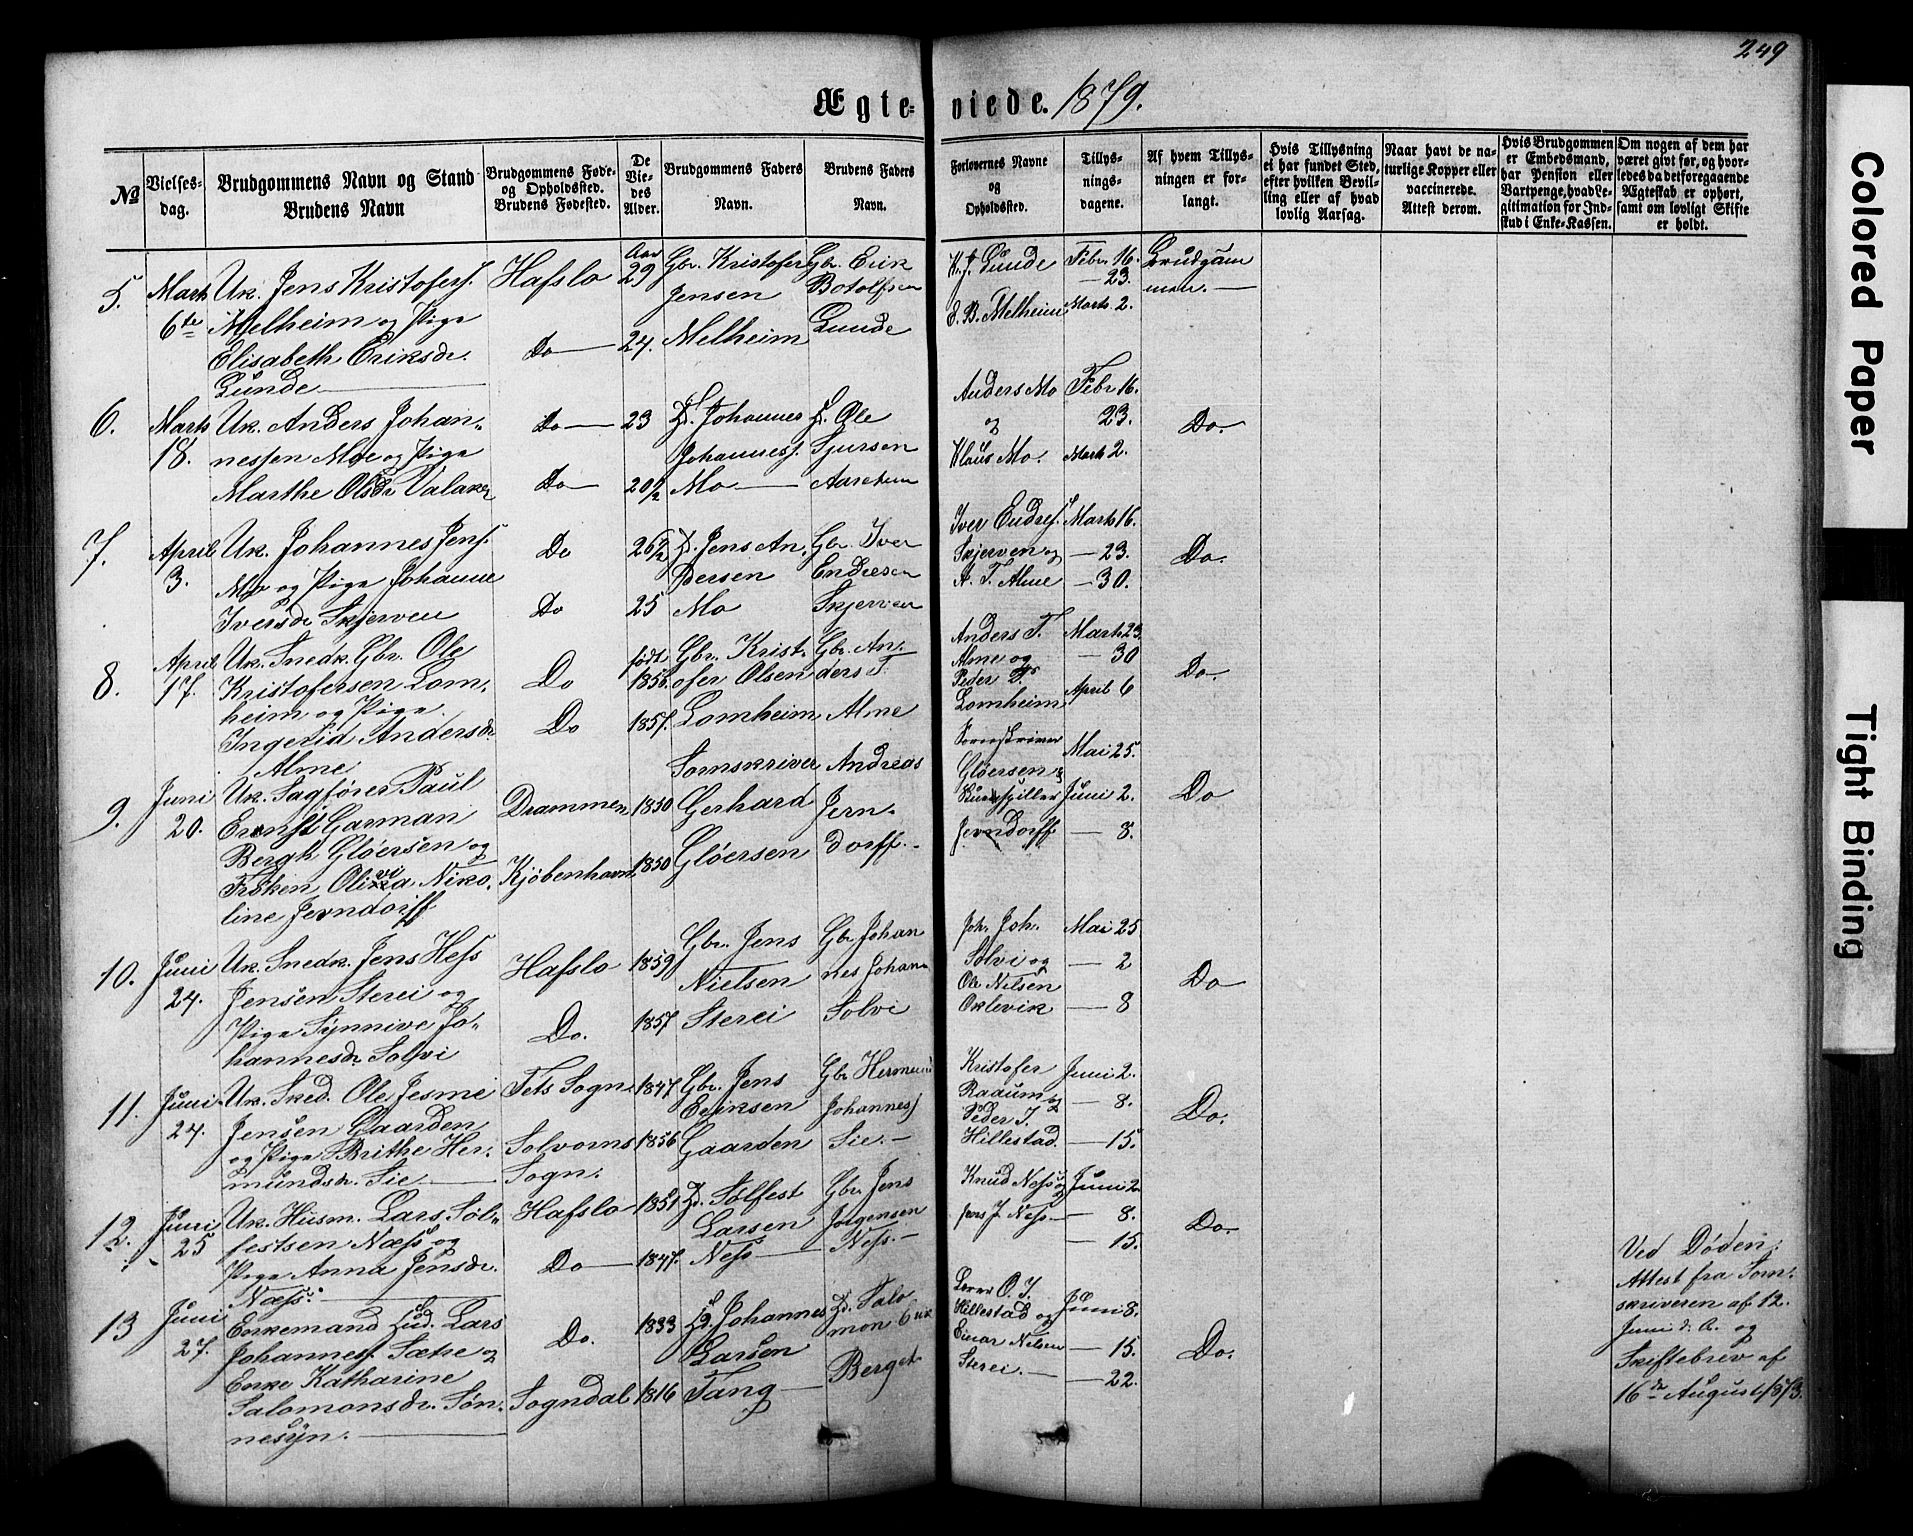 249
Ægteviede. 1879.
№
Vielses-
dag.
Brudgommens Navn og Stand
Brudens Navn
Brudgommens Føde-
og Opholdssted.
Brudens Fødested.
De
Vie-
des
Alder.
Brudgommens Faders
Navn.
Brudens Faders
Navn.
Forlovernes Navne
og
Opholdssted.
Tillys-
nings-
dagene.
Af hvem Tillys-
ningen er for-
langt.
Hvis Tillysning
ei har fundet Sted,
efter hvilken Bevil-
ling eller af hvad
lovlig Aarsag.
Naar havt de na-
turlige Kopper eller
vaccinerede.
Attest derom.
Hvis Brudgommen
er Embedsmand,
har Pension eller
Vartpenge, hvad Le-
gitimation for Ind-
skud i Enke-Kassen.
Om nogen af dem har
været givt før, og hvor-
ledes da det foregaaende
Ægteskab er ophørt,
samt om lovligt Skifte
er holdt.
5.
Marts
6te
Uk. Jens Kristofers.
Melheim og Pige
Elisabeth Eriksdr.
Lunde
Hafslo
Do
Aar
29
24.
Gbr. Kristofer
Jensen
Melheim
Gbr. Erik
Botolfsen
Lunde
K. J. Lunde
E. B. Melheim
Febr. 16.
— 23.
Marts 2.
Brudgom
men.
6.
Marts
18.
Uk. Anders Johan-
nessen Moe og Pige
Marthe Olsdr Valaker
Do
Do
23
20½
Johannes
Johanness.
Mo
Ole
Sjursen
Anders Mo
og
Klaus Mo.
Febr 16.
23.
Marts 2.
Do.
7.
April
3.
Uk. Johannes Jens.
Mo og Pige Johanne
Iversdr Skjerven
Do
Do
25
Jens An-
dersen
Mo
Gbr. Iver
Endresen
Skjerven
Iver Endres.
Skjerven og
A. T. Alme
Marts 16.
— 23.
— 30.
Do.
8.
April
17.
Uk. Snedk. Gbr. Ole
Kristofersen Lom-
heim og Pige
Ingerid Andersdr.
Alme
Do
Do
født
1856.
1857.
Gbr. Krist-
ofer Olsen
Lomheim
Gbr. An-
ders T.
Alme
Anders T.
Alme og
Peder
Lomheim
Marts 23.
— 30
April 6
Do.
9.
Juni
20.
Uk. Sagfører Paul
Ernst Garman
Bergh Gløersen og
Frøken Olivia Niko-
line Jerndorff
Drammen
Kjøbenhavn
1850
1850
Sornskriver
Gerhard
Gløersen
Andreas
Jern-
dorff.
Sorenskriver
Gløersen og
Skuespiller
Jerndorff
Mai 25.
Juni 2.
— 8.
Do
10.
Juni
24.
Uk. Snedk. Jens Hess
Jensen Sterei og
Pige Synnive Jo-
hannesdr. Solvi
Hafslo
Do.
1859
1857
Gbr. Jens
Nielsen
Sterei
Gbr Johan
nes Johan
Solvi
Joh. Joh.
Solvi og
Ole Nilsen
Oklevik
Mai 25
— 2
— 8
Do
11.
Juni
24.
Uk. Sked. Ole Jesme
Jensen Gaarden
og Pige Brithe Her-
mundsdr. Sie
Fets Sogn
Solvorns
Sogn.
1847
1856
Gbr. Jens
Eriksen
Gaarden
Gbr Hermund
Johannes.
Sie.
Kristofer
Raaum og
Peder I.
Hillestad.
Juni 2.
— 8.
— 15.
Do.
12.
Juni
25
Uk. Husm. Lars Sol-
festsen Næss og
Pige Anna Jensdr.
Næss.
Hafslo
Do
1851
1847.
Solfest
Larsen
Ness
Gbr. Jens
Jørgensen
Ness.
Knud Ness og
Jens J. Ness
Juni 2
— 8.
— 15.
Do.
13
Juni
27.
Enkemand Lars
Johanness. Sætre og
Enke Katharine
Salomonsdr. Søn-
nesyn.
Do.
Sogndal
1833
1816
Johannes
Larsen
Tang
Salo
mon
Berget
O. I.
Hillestad og
Einar Nilsen
Sterei.
Juni 8.
— 15.
— 22.
Do.
Ved Døden.
Attest fra Sorn-
skriveren af 12.
Juni d. A. og
Skiftebrev af
16de August 1873.
Colored Paper
Tight Binding